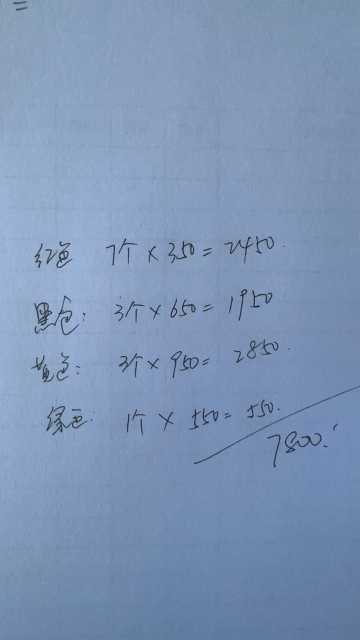 =
红色 7个×350=2450.
黑色: 3个×650=1950
黄色: 3个×950=2850.
绿色: 1个×550=550.
7800.